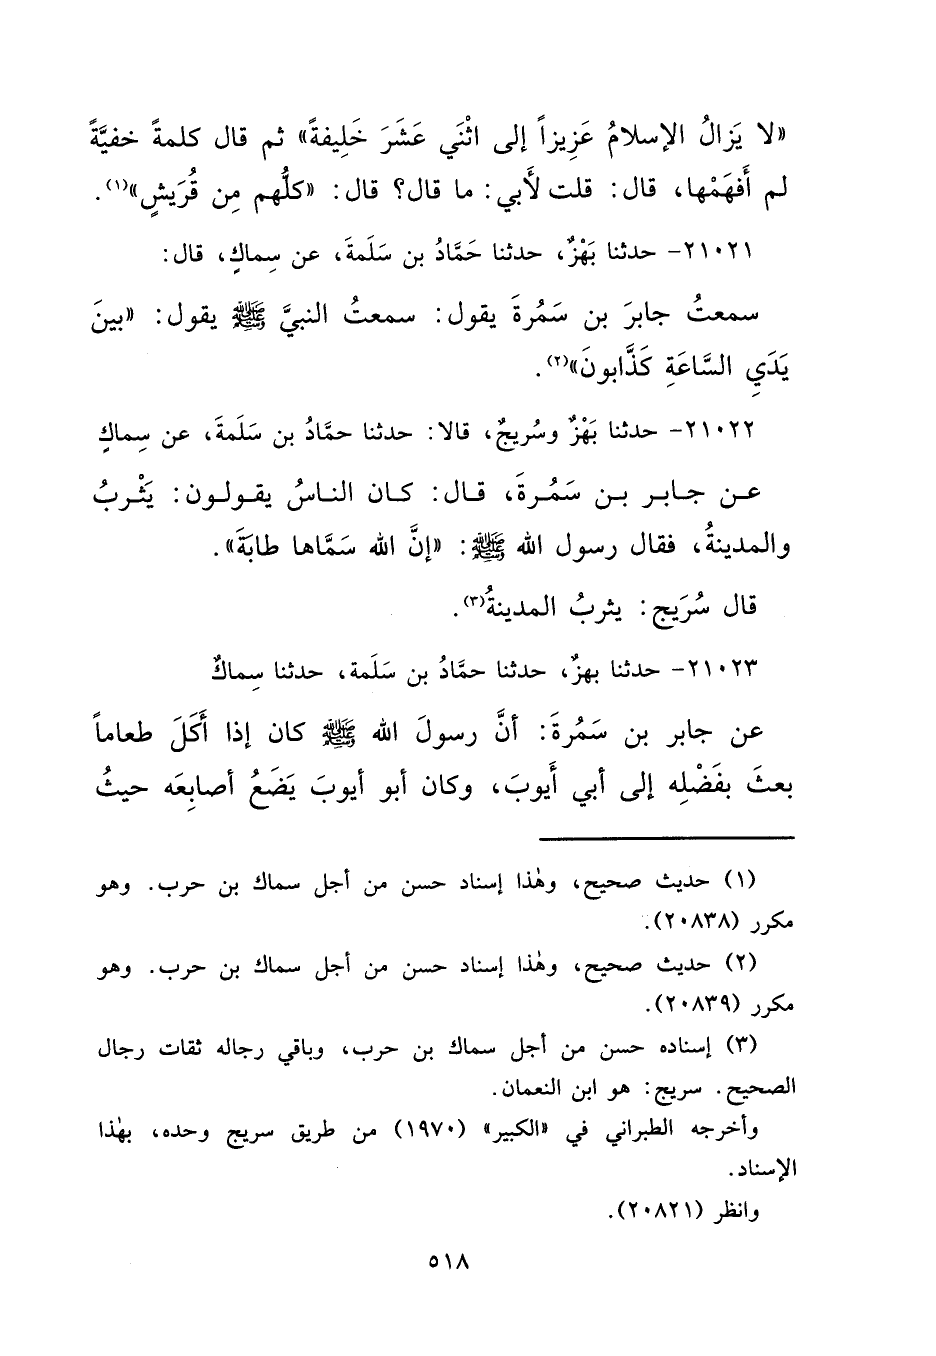 «لا يَزالُ الإسلامُ عَزِيزاً إلى اثْنَي عَشَرَ خَلِيفةً» ثم قال كلمةً خفيَّةً
لم أَفهَمْها، قال: قلت لأَبي: ما قال؟ قال: «كلُّهم مِن قُرَيشٍ»(١).
٢١٠٢١- حدثنا بَهْزٌ، حدثنا حَمَّادُ بن سَلَمةَ، عن سِماكٍ، قال:
سمعتُ جابرَ بن سَمُرةَ يقول: سمعتُ النبيَّ ﷺ يقول: «بينَ
يَدَيِ السَّاعَةِ كَذَّابونَ»(٢).
٢١٠٢٢- حدثنا بَهْزٌ وسُريجٌ، قالا: حدثنا حمَّادُ بن سَلَمةَ، عن سِماكٍ
عن جابر بن سَمُرةَ، قال: كان الناسُ يقولون: يَثْربُ
والمدينةُ، فقال رسول الله ﷺ: «إنَّ الله سَمَّاها طابَةَ».
قال سُرَيج: يثربُ المدينةُ(٣).
٢١٠٢٣- حدثنا بهزٌ، حدثنا حمَّادُ بن سَلَمة، حدثنا سِماكٌ
عن جابر بن سَمُرةَ: أنَّ رسولَ الله ﷺ كان إذا أَكَلَ طعاماً
بعثَ بفَضْلِه إلى أبي أَيوبَ، وكان أبو أيوبَ يَضَعُ أصابِعَه حيثُ
(١) حديث صحيح، وهٰذا إسناد حسن من أجل سماك بن حرب. وهو
مكرر (٢٠٨٣٨).
(٢) حديث صحيح، وهٰذا إسناد حسن من أجل سماك بن حرب. وهو
مكرر (٢٠٨٣٩).
(٣) إسناده حسن من أجل سماك بن حرب، وباقي رجاله ثقات رجال
الصحيح. سريج: هو ابن النعمان.
وأخرجه الطبراني في «الكبير» (١٩٧٠) من طريق سريج وحده، بهٰذا
الإسناد.
وانظر (٢٠٨٢١).
٥١٨